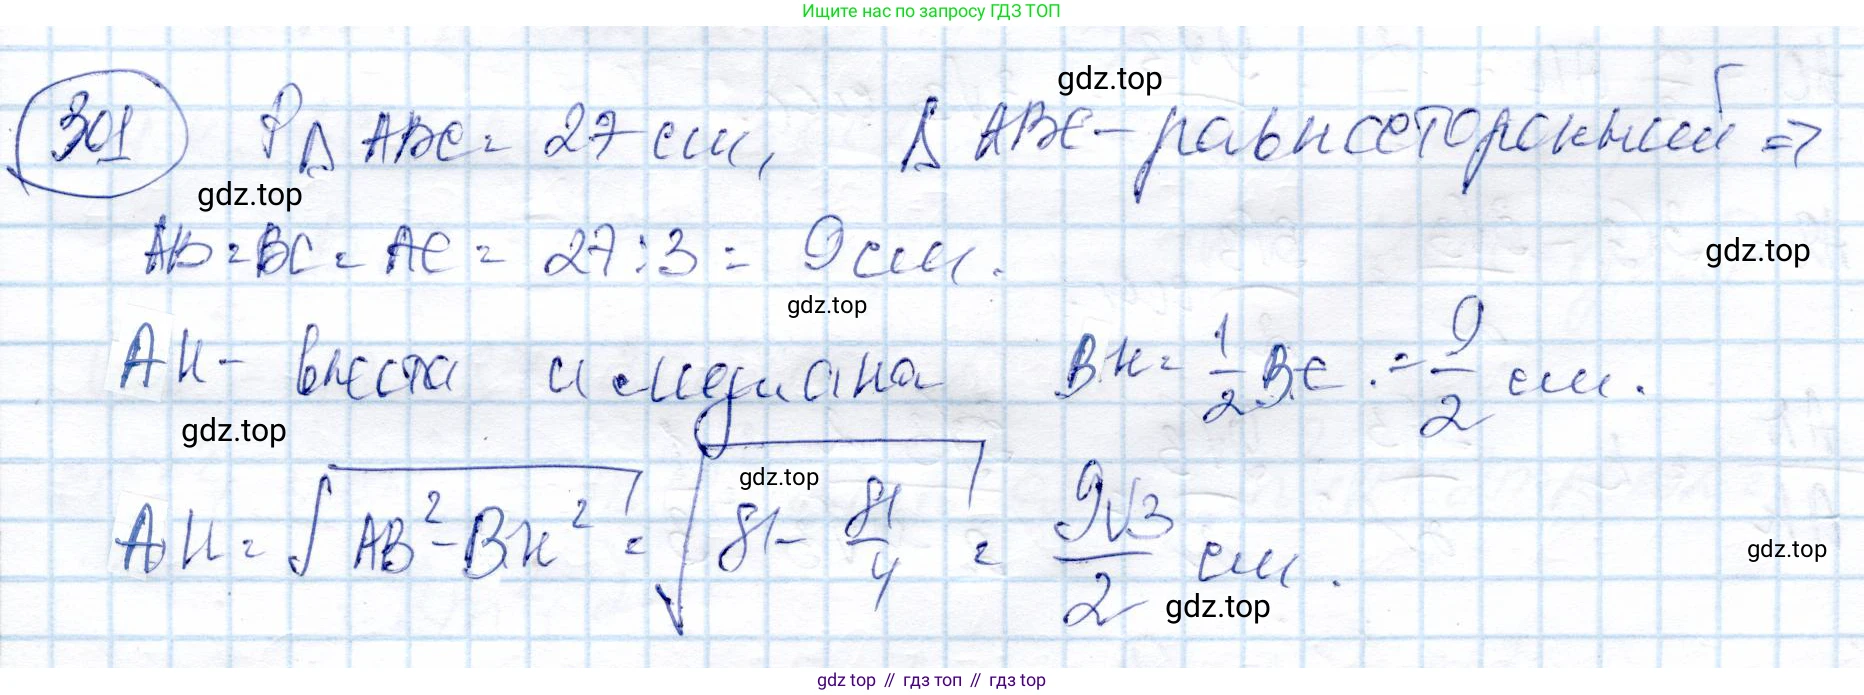 Ищите нас по запросу ГДЗ ТОП
gdz.top
301 P△ABC = 27 см, △ABC - равносторонний =>
gdz.top
AB = BC = AC = 27 : 3 = 9 см.
gdz.top
gdz.top
AH - высота и медиана BH = 1/2 BC = 9/2 см.
gdz.top
gdz.top
AH = √(AB² - BH²) = √(81 - 81/4) = 9√3/2 см.
gdz.top
gdz.top
gdz top // гдз топ // gdz top